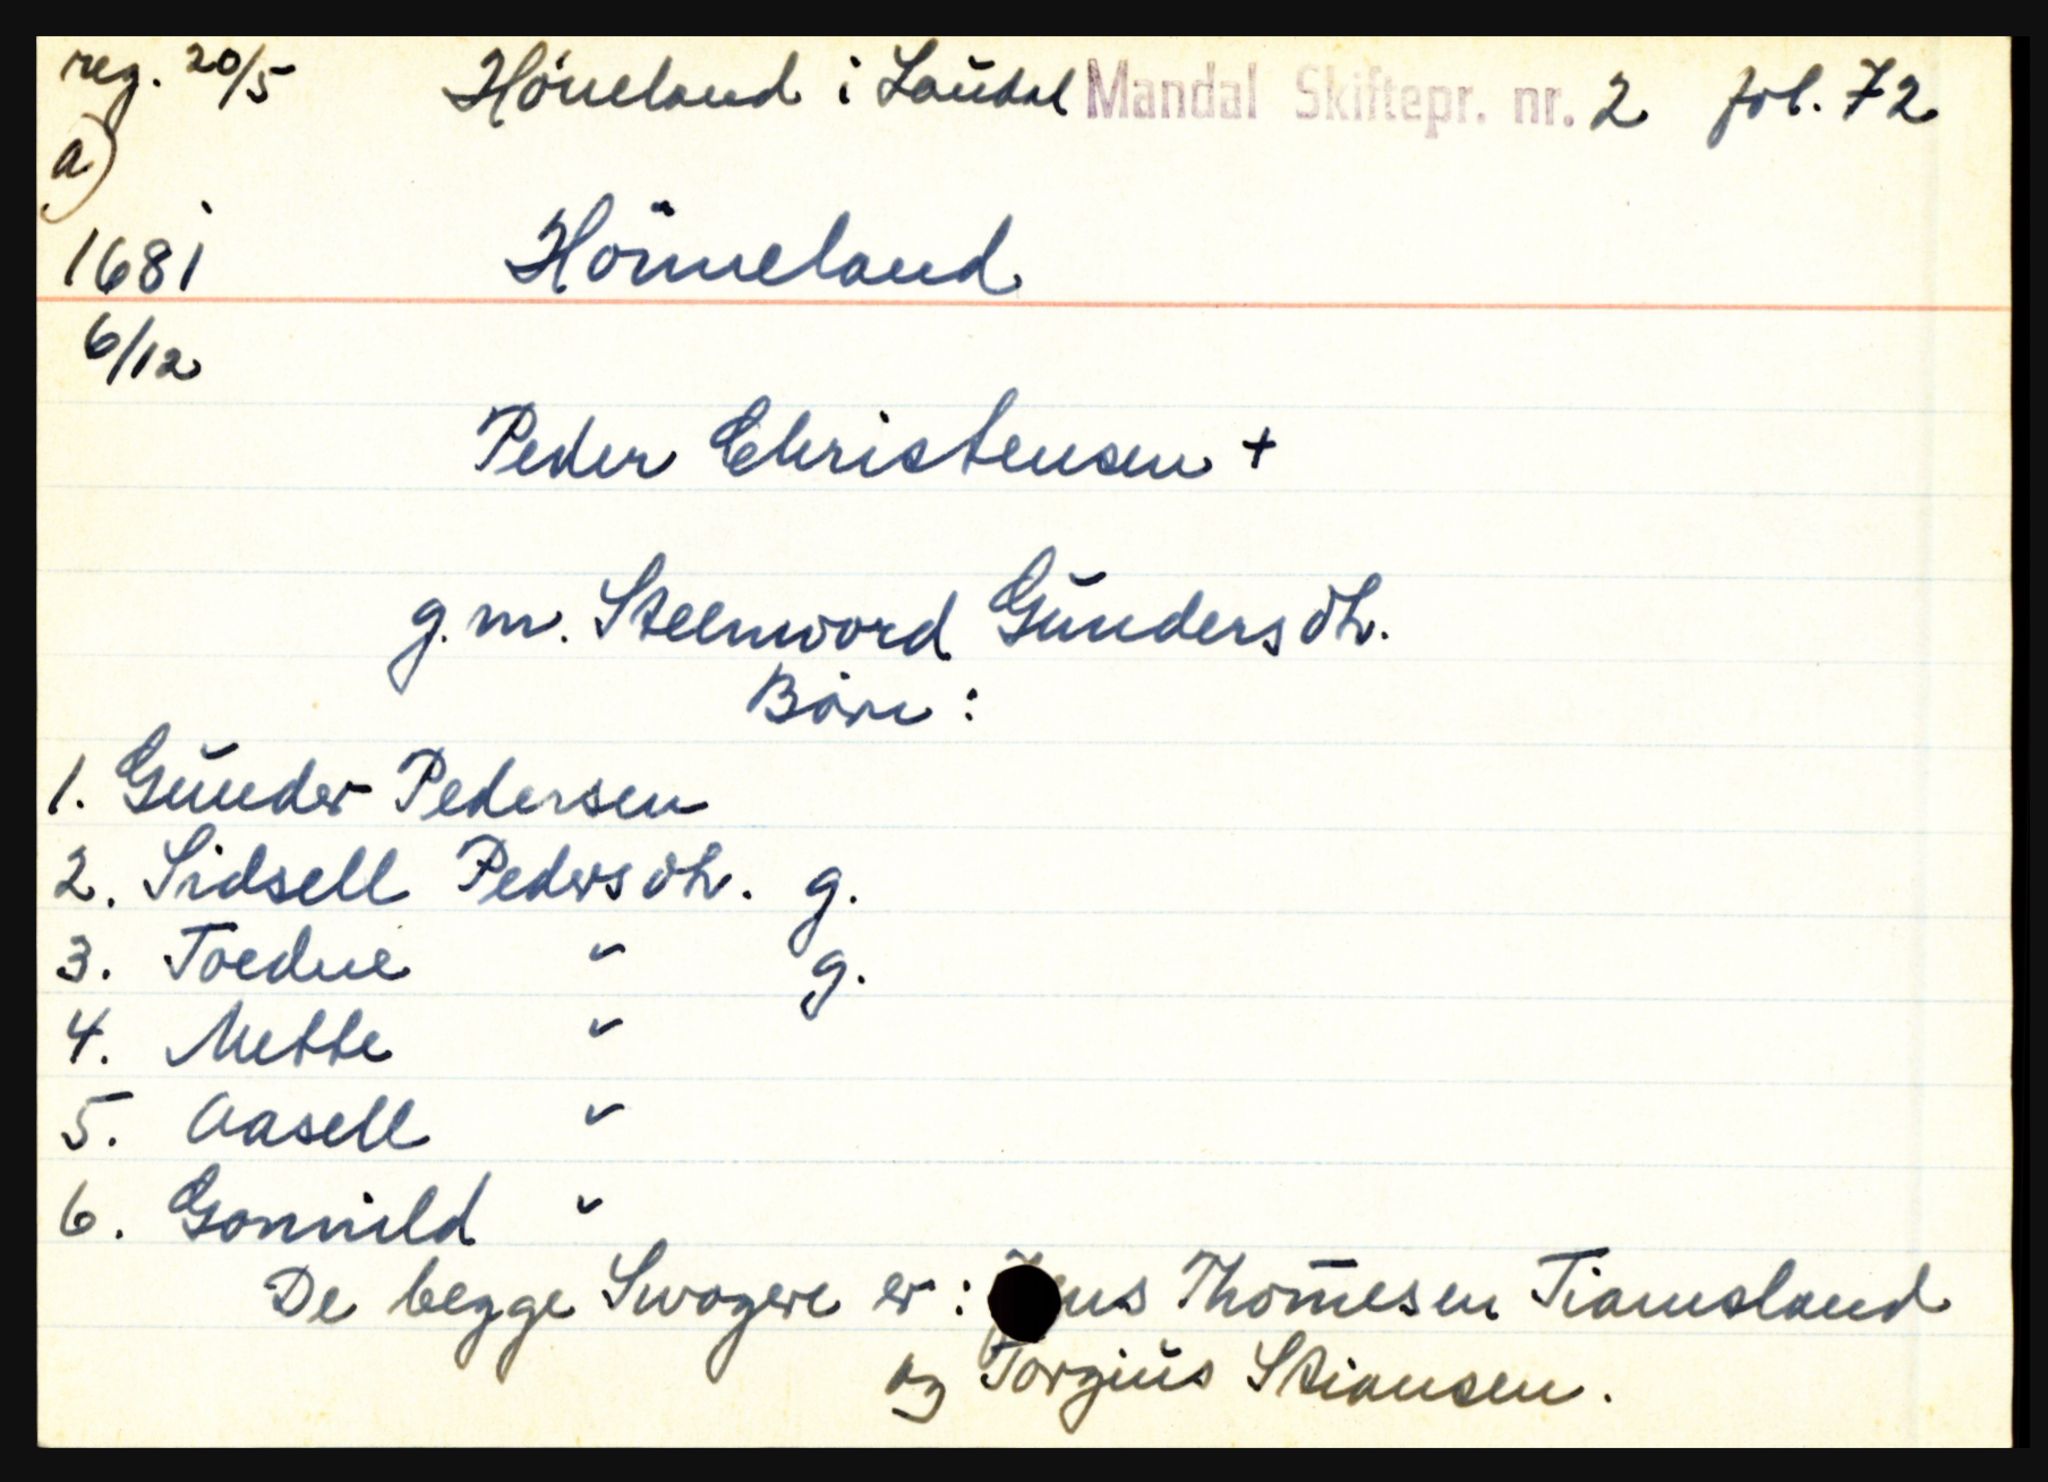 reg. 20/5 Höneland i Laudal Mandal Skiftepr. nr. 2 fol. 72
a)
1681 Hönneland
6/12
Peder Christensen +
g. m. Steenword Gŭndersdtr.
Börn :
1. Gŭnder Pedersen
2. Sidsell Pedersdtr. g.
3. Toedne " g.
4. Mette "
5. Aasell "
6. Gonnild "
De begge Swogere er : Thomesen Tiamsland
og Torgiŭs Stiansen.